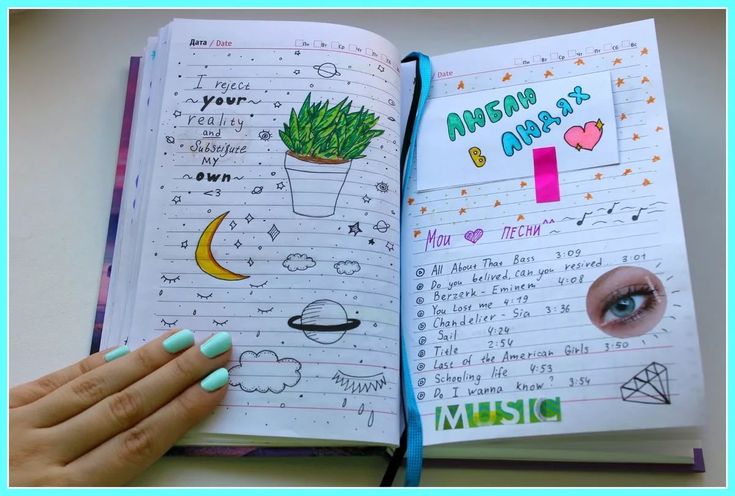 Дата / Date
Пн Вт Ср Чт Пт Сб Вс
I reject
~ your ~
reality
and
Substitute
MY
~ own ~
<3
/ Date
Пн Вт Ср Чт Пт Сб Вс
Люблю
в людях
Мои песни
All About That Bass 3:09
Do you belived, can you resived 3:01
Berzerk - Eminem 4:08
You Lost me 4:19
Chandelier - Sia 3:36
Sail 4:24
Title 2:54
Last of the American Girls 3:50
Schooling life 4:53
Do I wanna know? 3:54
MUSIC